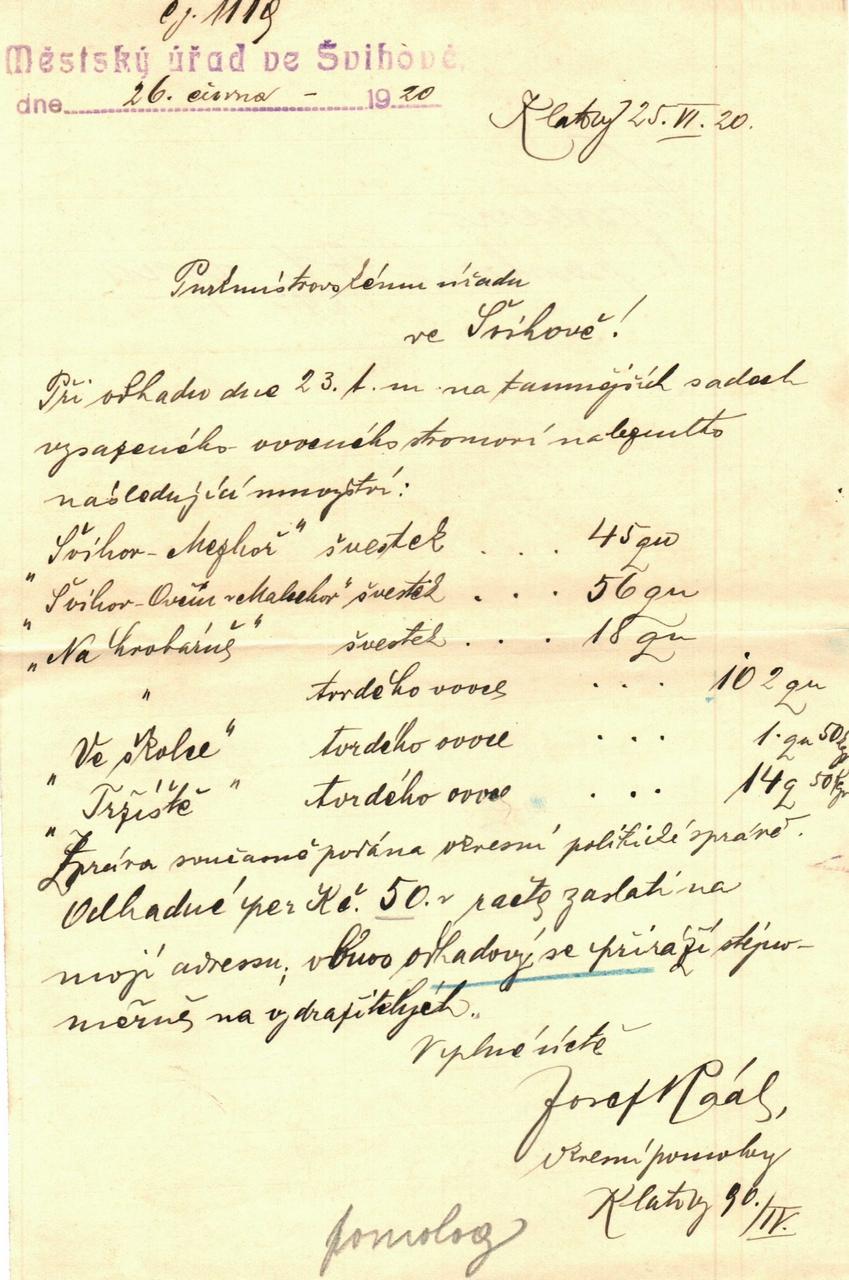 čj. 1119
Městský úřad ve Švihově.
dne 26. června - 1920
Klatovy 25. VI. 20.
Purkmistrovskému úřadu
ve Švihově!
Při odhadu dne 23. t. m. na tamnějších sadech
vysazeného ovocného stromoví naleznuto
následující množství:
"Švihov - Mezhoř" švestek . . . 45 qu
"Švihov - Ovčín - Malechov" švestek . . . 56 qu
"Na hrobárně" švestek . . . 18 qu
" tvrdého ovoce . . . 102 qu
"Ve školce" tvrdého ovoce . . . 1 qu 50 kg
"Tržiště" tvrdého ovoce . . . 14 q 50 kgr
Zpráva současně podána okresní politické správě.
Odhadné per Kč. 50.- račte zaslati na
moji adressu; odhadový se přiráží stejno-
měrně na vydražitelých.
V plné úctě
Josef Král,
okresní pomolog
Klatovy 90./IV.
pomolog